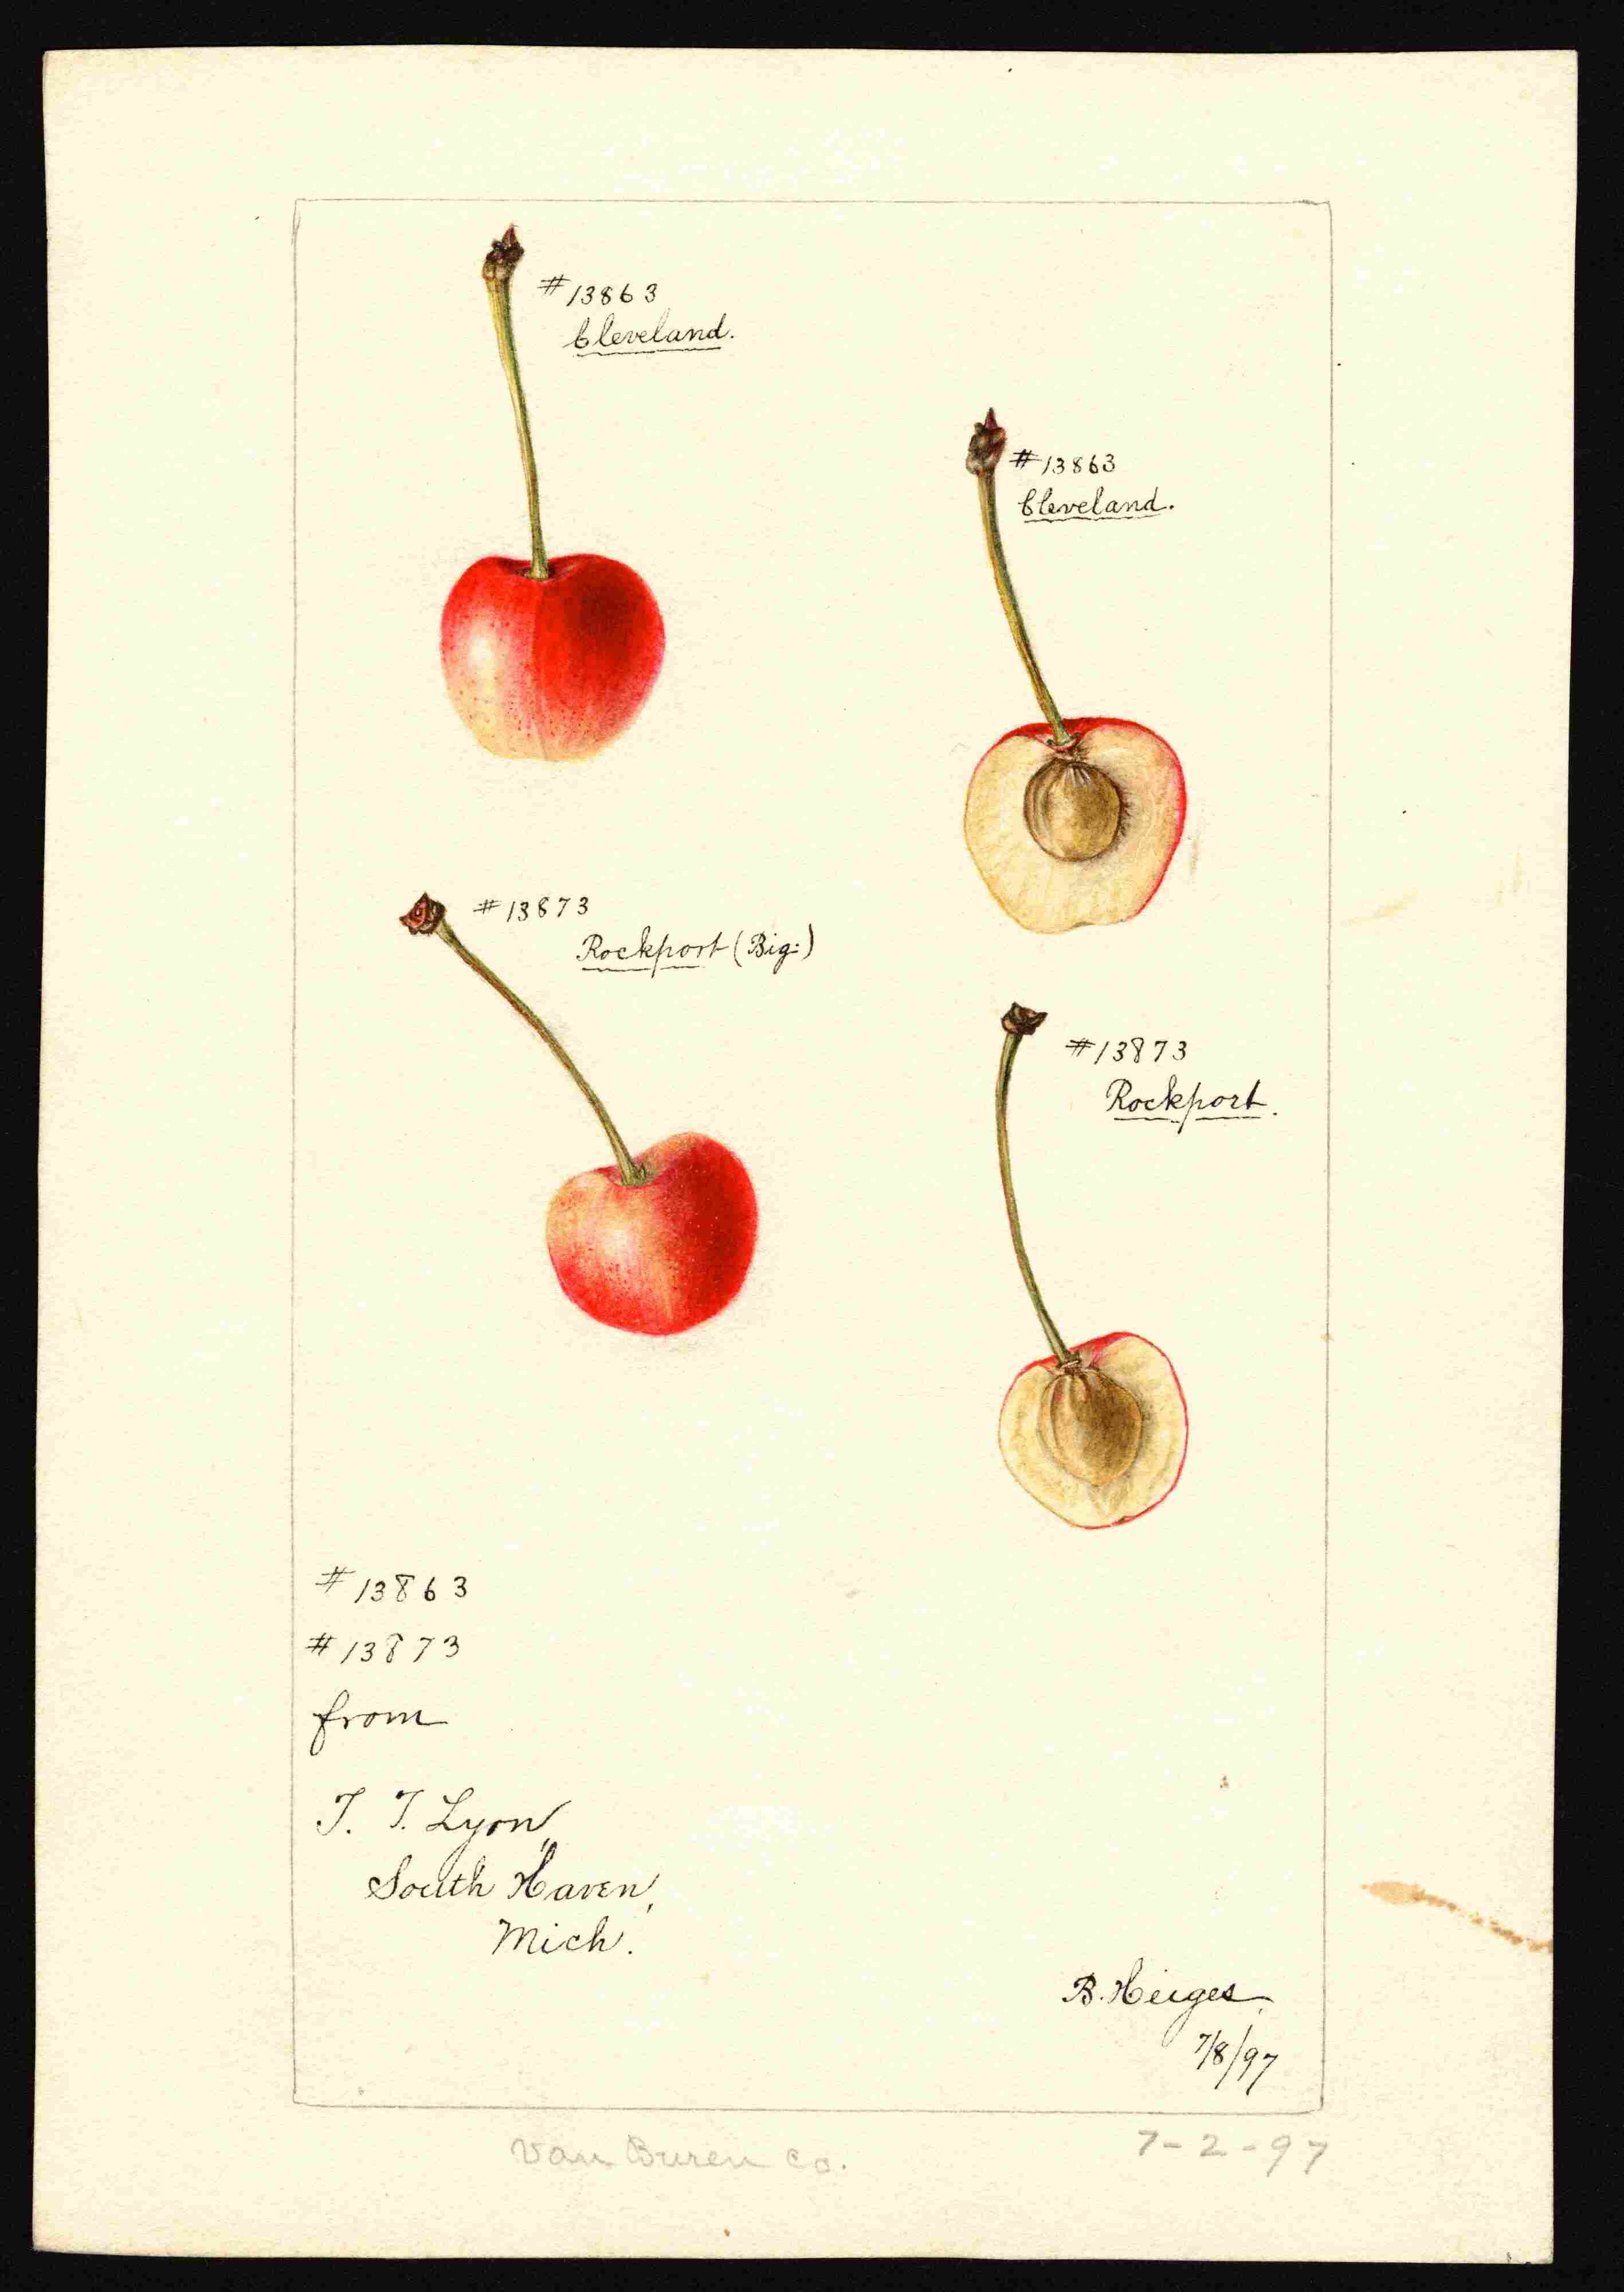 #13863
Cleveland.
#13863
Cleveland.
#13873
Rockport (Big:)
#13873
Rockport.
#13863
#13873
from
T. T. Lyon,
South Haven,
Mich.
B. Heiges.
7/8/97
Van Buren Co.
7-2-97